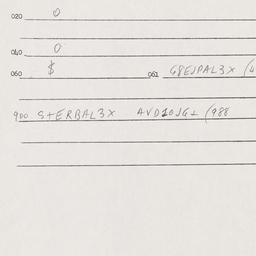 020 0
040 0
060 $ 061 G8EJPAL3X (4
900 S+ERBAL3X AVD10JG+ (988